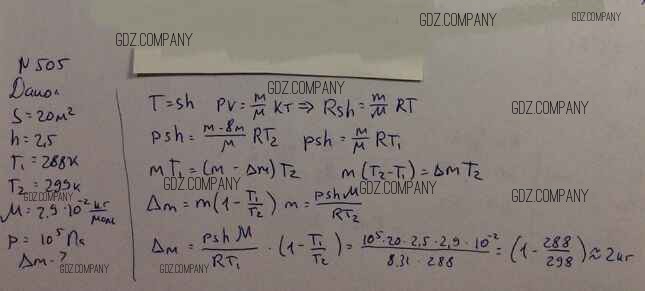 GDZ.COMPANY
GDZ.COMPANY
GDZ.COMPANY
N 505
Дано:
S = 20м²
h = 2,5
T₁ = 288К
GDZ.COMPANY
T₂ = 299К
M = 2,9 · 10⁻² кг/моль
p = 10⁵ Па
Δm - ?
GDZ.COMPANY
GDZ.COMPANY
T = sh PV = m/M КТ ⇒ Rsh = m/M RT
GDZ.COMPANY
psh = m - 8m/M RT₂ psh = m/M RT₁
GDZ.COMPANY
mT₁ = (m - Δm)T₂ m(T₂ - T₁) = ΔmT₂
GDZ.COMPANY
GDZ.COMPANY
GDZ.COMPANY
Δm = m(1 - T₁/T₂) m = pshM/RT₂
GDZ.COMPANY
Δm = pshM/RT₁ · (1 - T₁/T₂) = 10⁵·20·2,5·2,9·10⁻²/8,31·288 = (1 - 288/298) ≈ 2кг
GDZ.COMPANY
GDZ.COMPANY
GDZ.COMPANY